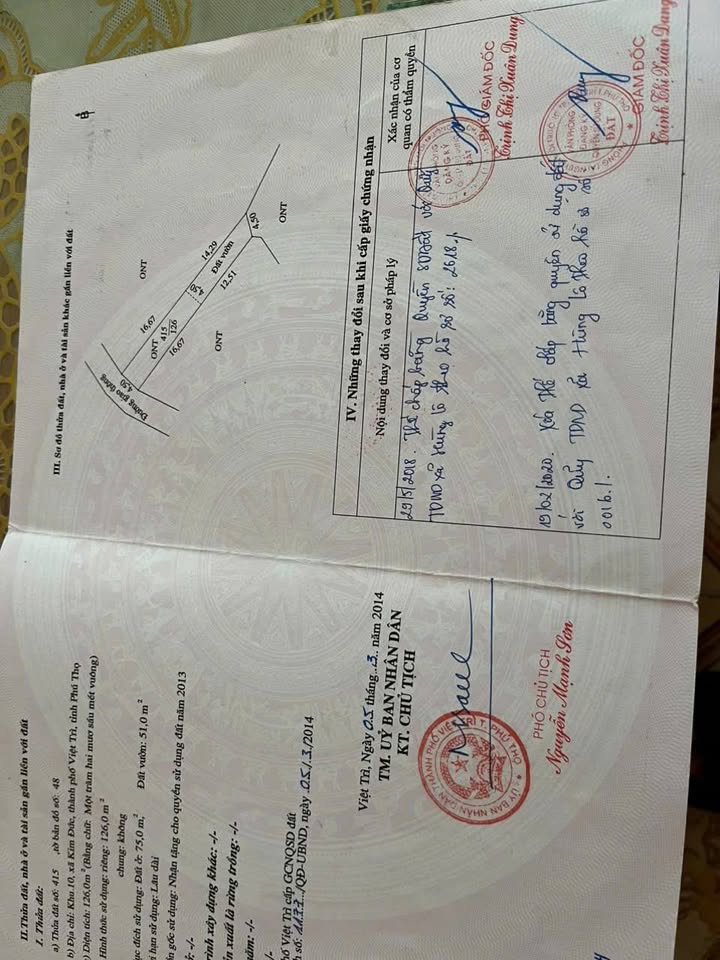 II. Thửa đất, nhà ở và tài sản gắn liền với đất
1. Thửa đất:
a) Thửa đất số: 415 , tờ bản đồ số: 48
b) Địa chỉ: Khu 10, xã Kim Đức, thành phố Việt Trì, tỉnh Phú Thọ
) Diện tích: 126,0m² (Bằng chữ: Một trăm hai mươi sáu mét vuông)
Hình thức sử dụng: riêng: 126,0 m²
chung: không
ục đích sử dụng: Đất ở: 75,0 m², Đất vườn: 51,0 m²
i hạn sử dụng: Lâu dài
ồn gốc sử dụng: Nhận tặng cho quyền sử dụng đất năm 2013
: -/-
rình xây dựng khác: -/-
n xuất là rừng trồng: -/-
năm: -/-
/-
hố Việt Trì cấp GCNQSD đất
h số: /QĐ-UBND, ngày 05/3/2014
Việt Trì, Ngày 05 tháng 3 năm 2014
TM. UỶ BAN NHÂN DÂN
KT. CHỦ TỊCH
ỦY BAN NHÂN DÂN THÀNH PHỐ VIỆT TRÌ T. PHÚ THỌ
PHÓ CHỦ TỊCH
Nguyễn Mạnh Sơn
III. Sơ đồ thửa đất, nhà ở và tài sản khác gắn liền với đất
B
Đường giao thông
4,50
16,67
ONT
415
126
16,67
4,50
14,29
Đất vườn
12,51
4,50
ONT
ONT
ONT
IV. Những thay đổi sau khi cấp giấy chứng nhận
Nội dung thay đổi và cơ sở pháp lý
Xác nhận của cơ quan có thẩm quyền
29/5/2018. Thế chấp bằng Quyền SD Đất với Quỹ
TDND xã Hùng Lô theo hồ sơ số: 2618./.
VĂN PHÒNG
ĐĂNG KÝ
ĐẤT
PHÓ GIÁM ĐỐC
Trịnh Thị Xuân Dung
19/02/2020. Xóa thế chấp bằng quyền sử dụng đất
với Quỹ TDND xã Hùng Lô theo hồ sơ số
0016./.
VĂN PHÒNG
ĐĂNG KÝ
QUYỀN SỬ DỤNG
ĐẤT
GIÁM ĐỐC
Trịnh Thị Xuân Dung